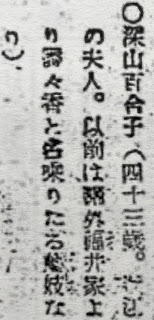 〇深山百合子（四十三歳。
の夫人。以前は福井家よ
り露々香と名乗りたる芸妓な
り）